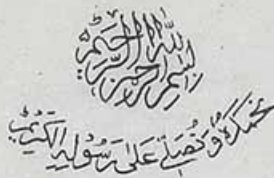 بسم الله الرحمن الرحيم
نحمده و نصلے علی رسوله الکریم